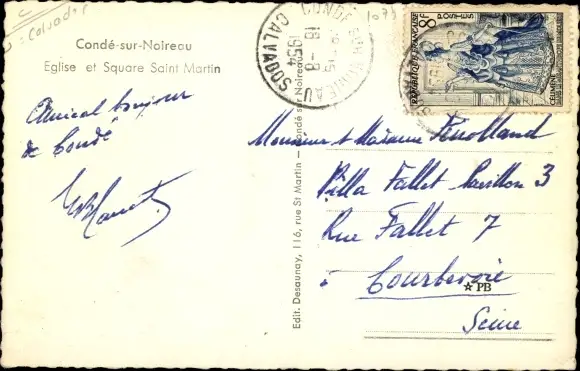 : Calvados
Condé-sur-Noireau
Eglise et Square Saint Martin
Amical bonjour
de Condé
Edit. Desaunay, 116, rue St Martin — Condé sur Noireau
CONDÉ SUR NOIREAU
18-8
1954
CALVADOS
8F
POSTES
REPUBLIQUE FRANÇAISE
CELIMENE
Monsieur & Madame
Villa Fallet Pavillon 3
Rue Fallet 7
Courbevoie
☆ PB
Seine